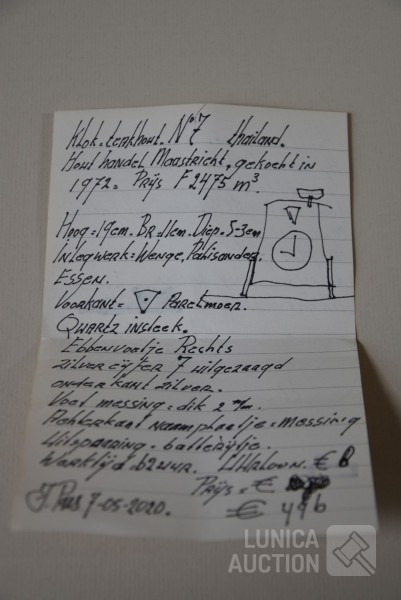 Klok = teakhout. No 7 thailand.
Hout handel Maastricht, gekocht in
1972 = Prijs F 2475 m³.
Hoog = 19cm. Br = 11cm. Diep = 5-3cm
Inlegwerk = Wenge, Palisander,
Essen.
Voorkant = Parelmoer.
Quartz insteek.
Ebbenvoetje Rechts
zilver cijfer 7 uitgezaagd
onderkant zilver.
Voet messing = dik 2 m/m.
Achterkant naamplaatje = messing
Uitsparing = batterijtje.
Werktijd 62 uur. € 8
Prijs = €
€ 496
7-05-2020.
LUNICA
AUCTION